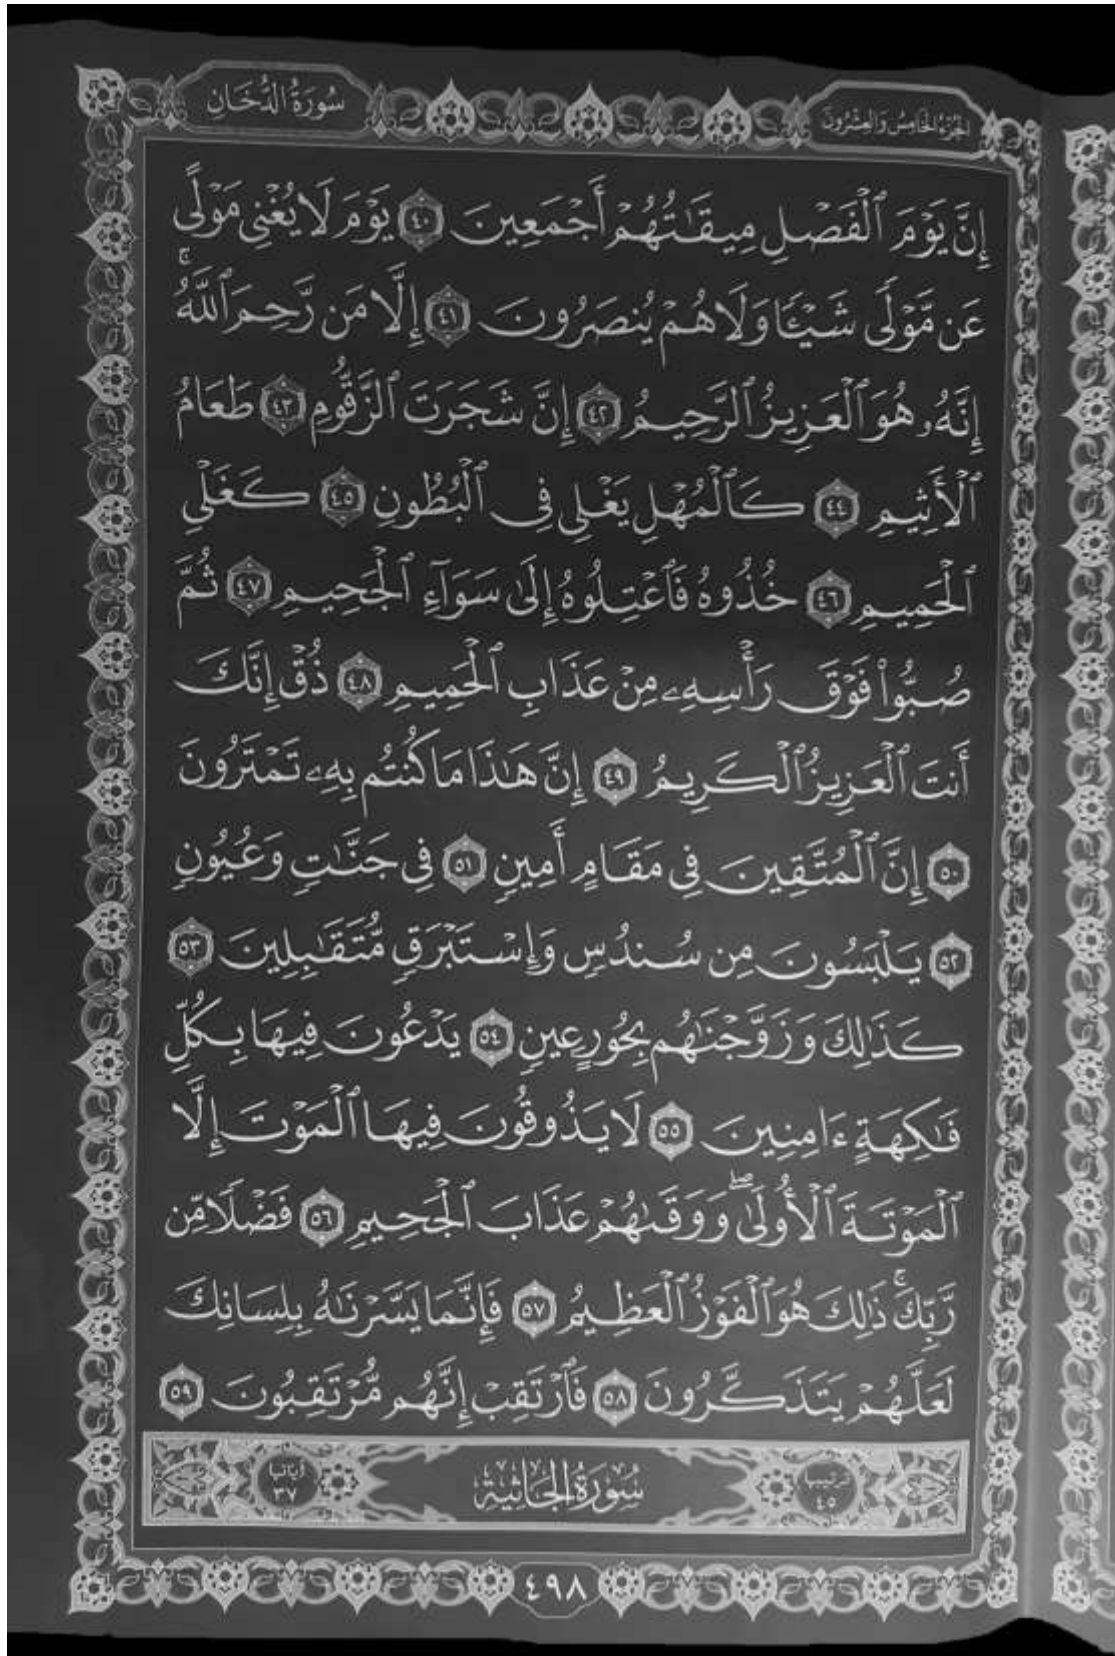 الجزء الخامس والعشرون
سُورَةُ الدُّخَانِ
إِنَّ يَوْمَ ٱلْفَصْلِ مِيقَٰتُهُمْ أَجْمَعِينَ ٤٠ يَوْمَ لَا يُغْنِى مَوْلًى
عَن مَّوْلًى شَيْـًٔا وَلَا هُمْ يُنصَرُونَ ٤١ إِلَّا مَن رَّحِمَ ٱللَّهُ ۚ
إِنَّهُۥ هُوَ ٱلْعَزِيزُ ٱلرَّحِيمُ ٤٢ إِنَّ شَجَرَتَ ٱلزَّقُّومِ ٤٣ طَعَامُ
ٱلْأَثِيمِ ٤٤ كَٱلْمُهْلِ يَغْلِى فِى ٱلْبُطُونِ ٤٥ كَغَلْىِ
ٱلْحَمِيمِ ٤٦ خُذُوهُ فَٱعْتِلُوهُ إِلَىٰ سَوَآءِ ٱلْجَحِيمِ ٤٧ ثُمَّ
صُبُّوا۟ فَوْقَ رَأْسِهِۦ مِنْ عَذَابِ ٱلْحَمِيمِ ٤٨ ذُقْ إِنَّكَ
أَنتَ ٱلْعَزِيزُ ٱلْكَرِيمُ ٤٩ إِنَّ هَٰذَا مَا كُنتُم بِهِۦ تَمْتَرُونَ
٥٠ إِنَّ ٱلْمُتَّقِينَ فِى مَقَامٍ أَمِينٍ ٥١ فِى جَنَّٰتٍ وَعُيُونٍ
٥٢ يَلْبَسُونَ مِن سُندُسٍ وَإِسْتَبْرَقٍ مُّتَقَٰبِلِينَ ٥٣
كَذَٰلِكَ وَزَوَّجْنَٰهُم بِحُورٍ عِينٍ ٥٤ يَدْعُونَ فِيهَا بِكُلِّ
فَٰكِهَةٍ ءَامِنِينَ ٥٥ لَا يَذُوقُونَ فِيهَا ٱلْمَوْتَ إِلَّا
ٱلْمَوْتَةَ ٱلْأُولَىٰ ۖ وَوَقَىٰهُمْ عَذَابَ ٱلْجَحِيمِ ٥٦ فَضْلًا مِّن
رَّبِّكَ ۚ ذَٰلِكَ هُوَ ٱلْفَوْزُ ٱلْعَظِيمُ ٥٧ فَإِنَّمَا يَسَّرْنَٰهُ بِلِسَانِكَ
لَعَلَّهُمْ يَتَذَكَّرُونَ ٥٨ فَٱرْتَقِبْ إِنَّهُم مُّرْتَقِبُونَ ٥٩
ترتيبها ٤٥ سُورَةُ الجَاثِيَةِ آياتها ٣٧
٤٩٨